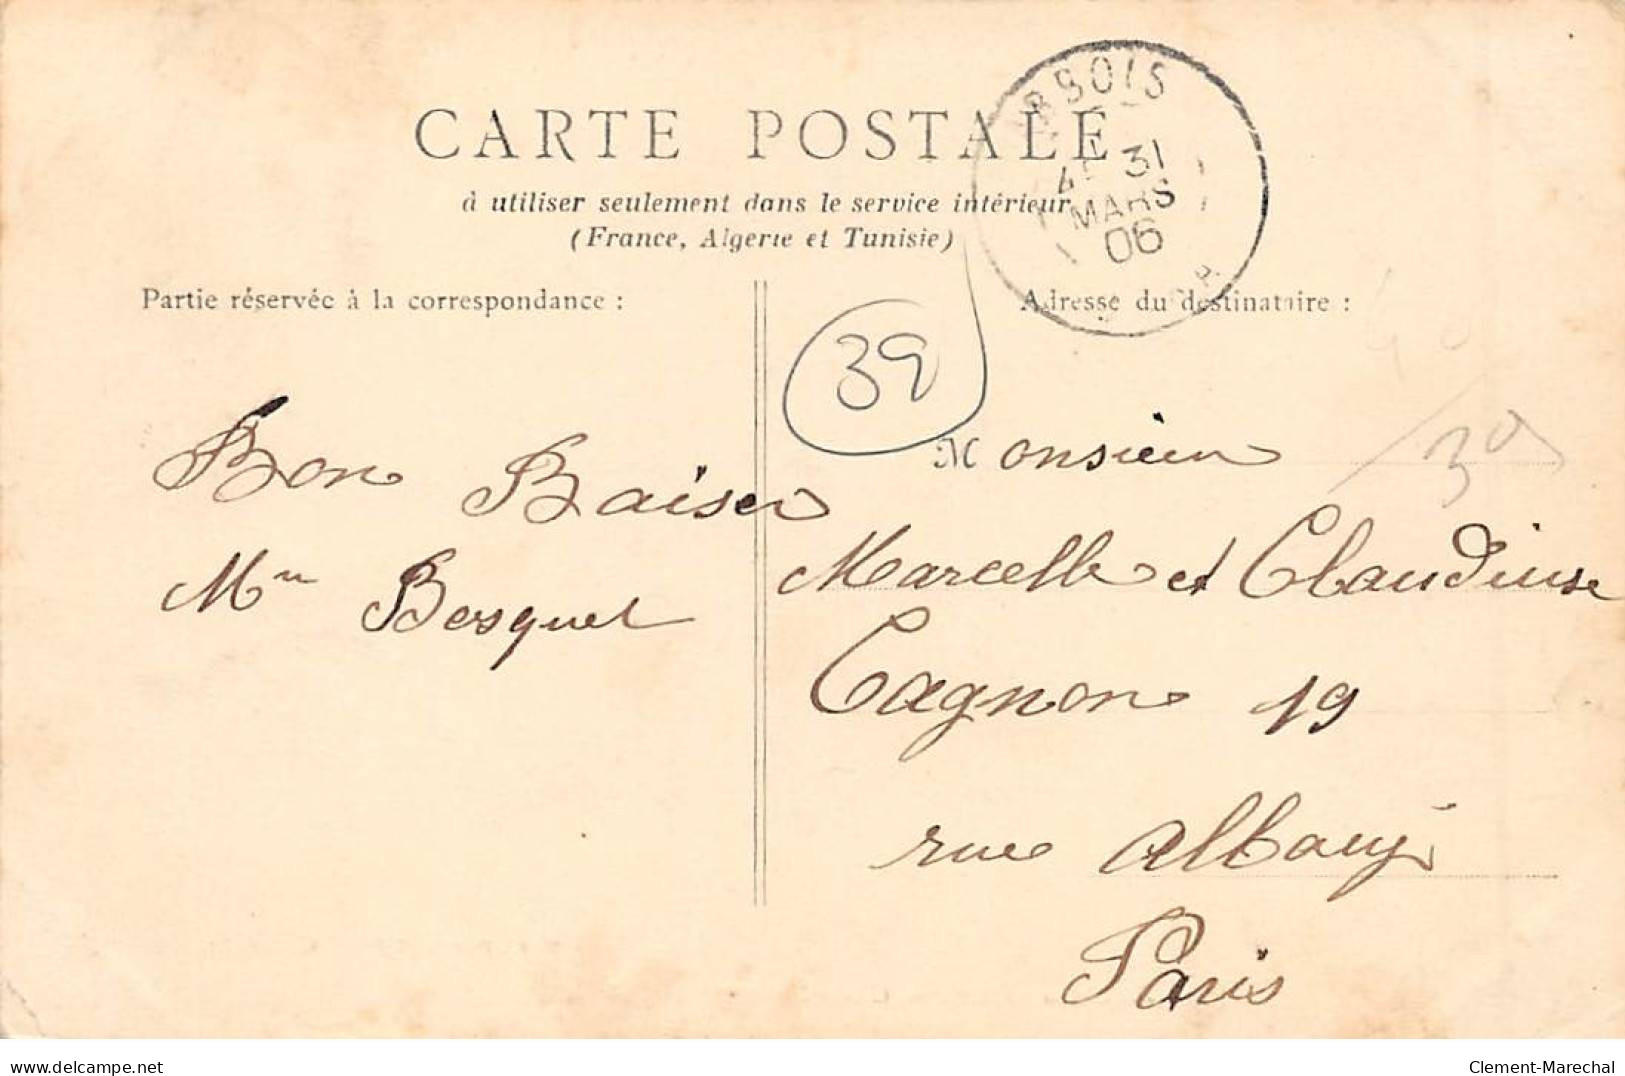 CARTE POSTALE
à utiliser seulement dans le service intérieur
(France, Algerie et Tunisie)
RBOIS
31
MARS
06
Partie réservée à la correspondance :
Bon Baiser
Mme Bosquet
39
Adresse du destinataire :
Monsieur
Marcelle et Claudeuse
Cagnon 19
rue Albouy
Paris
30
Clement-Marechal
delcampe.net